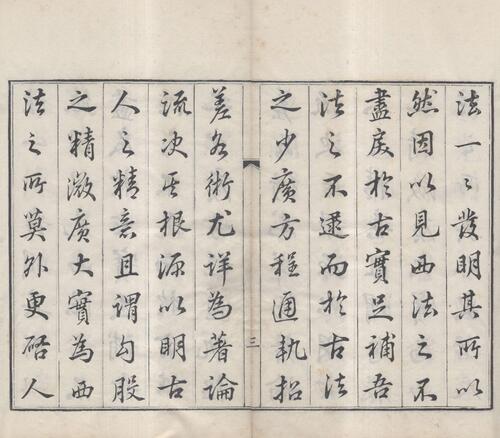 法一一發明其所以
然因以見西法之不
盡戾於古實足補吾
法之不逮而於古法
之少廣方程通執招
三
差各術尤詳為著論
流次其根源以明古
人之精意且謂勾股
之精微廣大實為西
法之所莫外更啓人